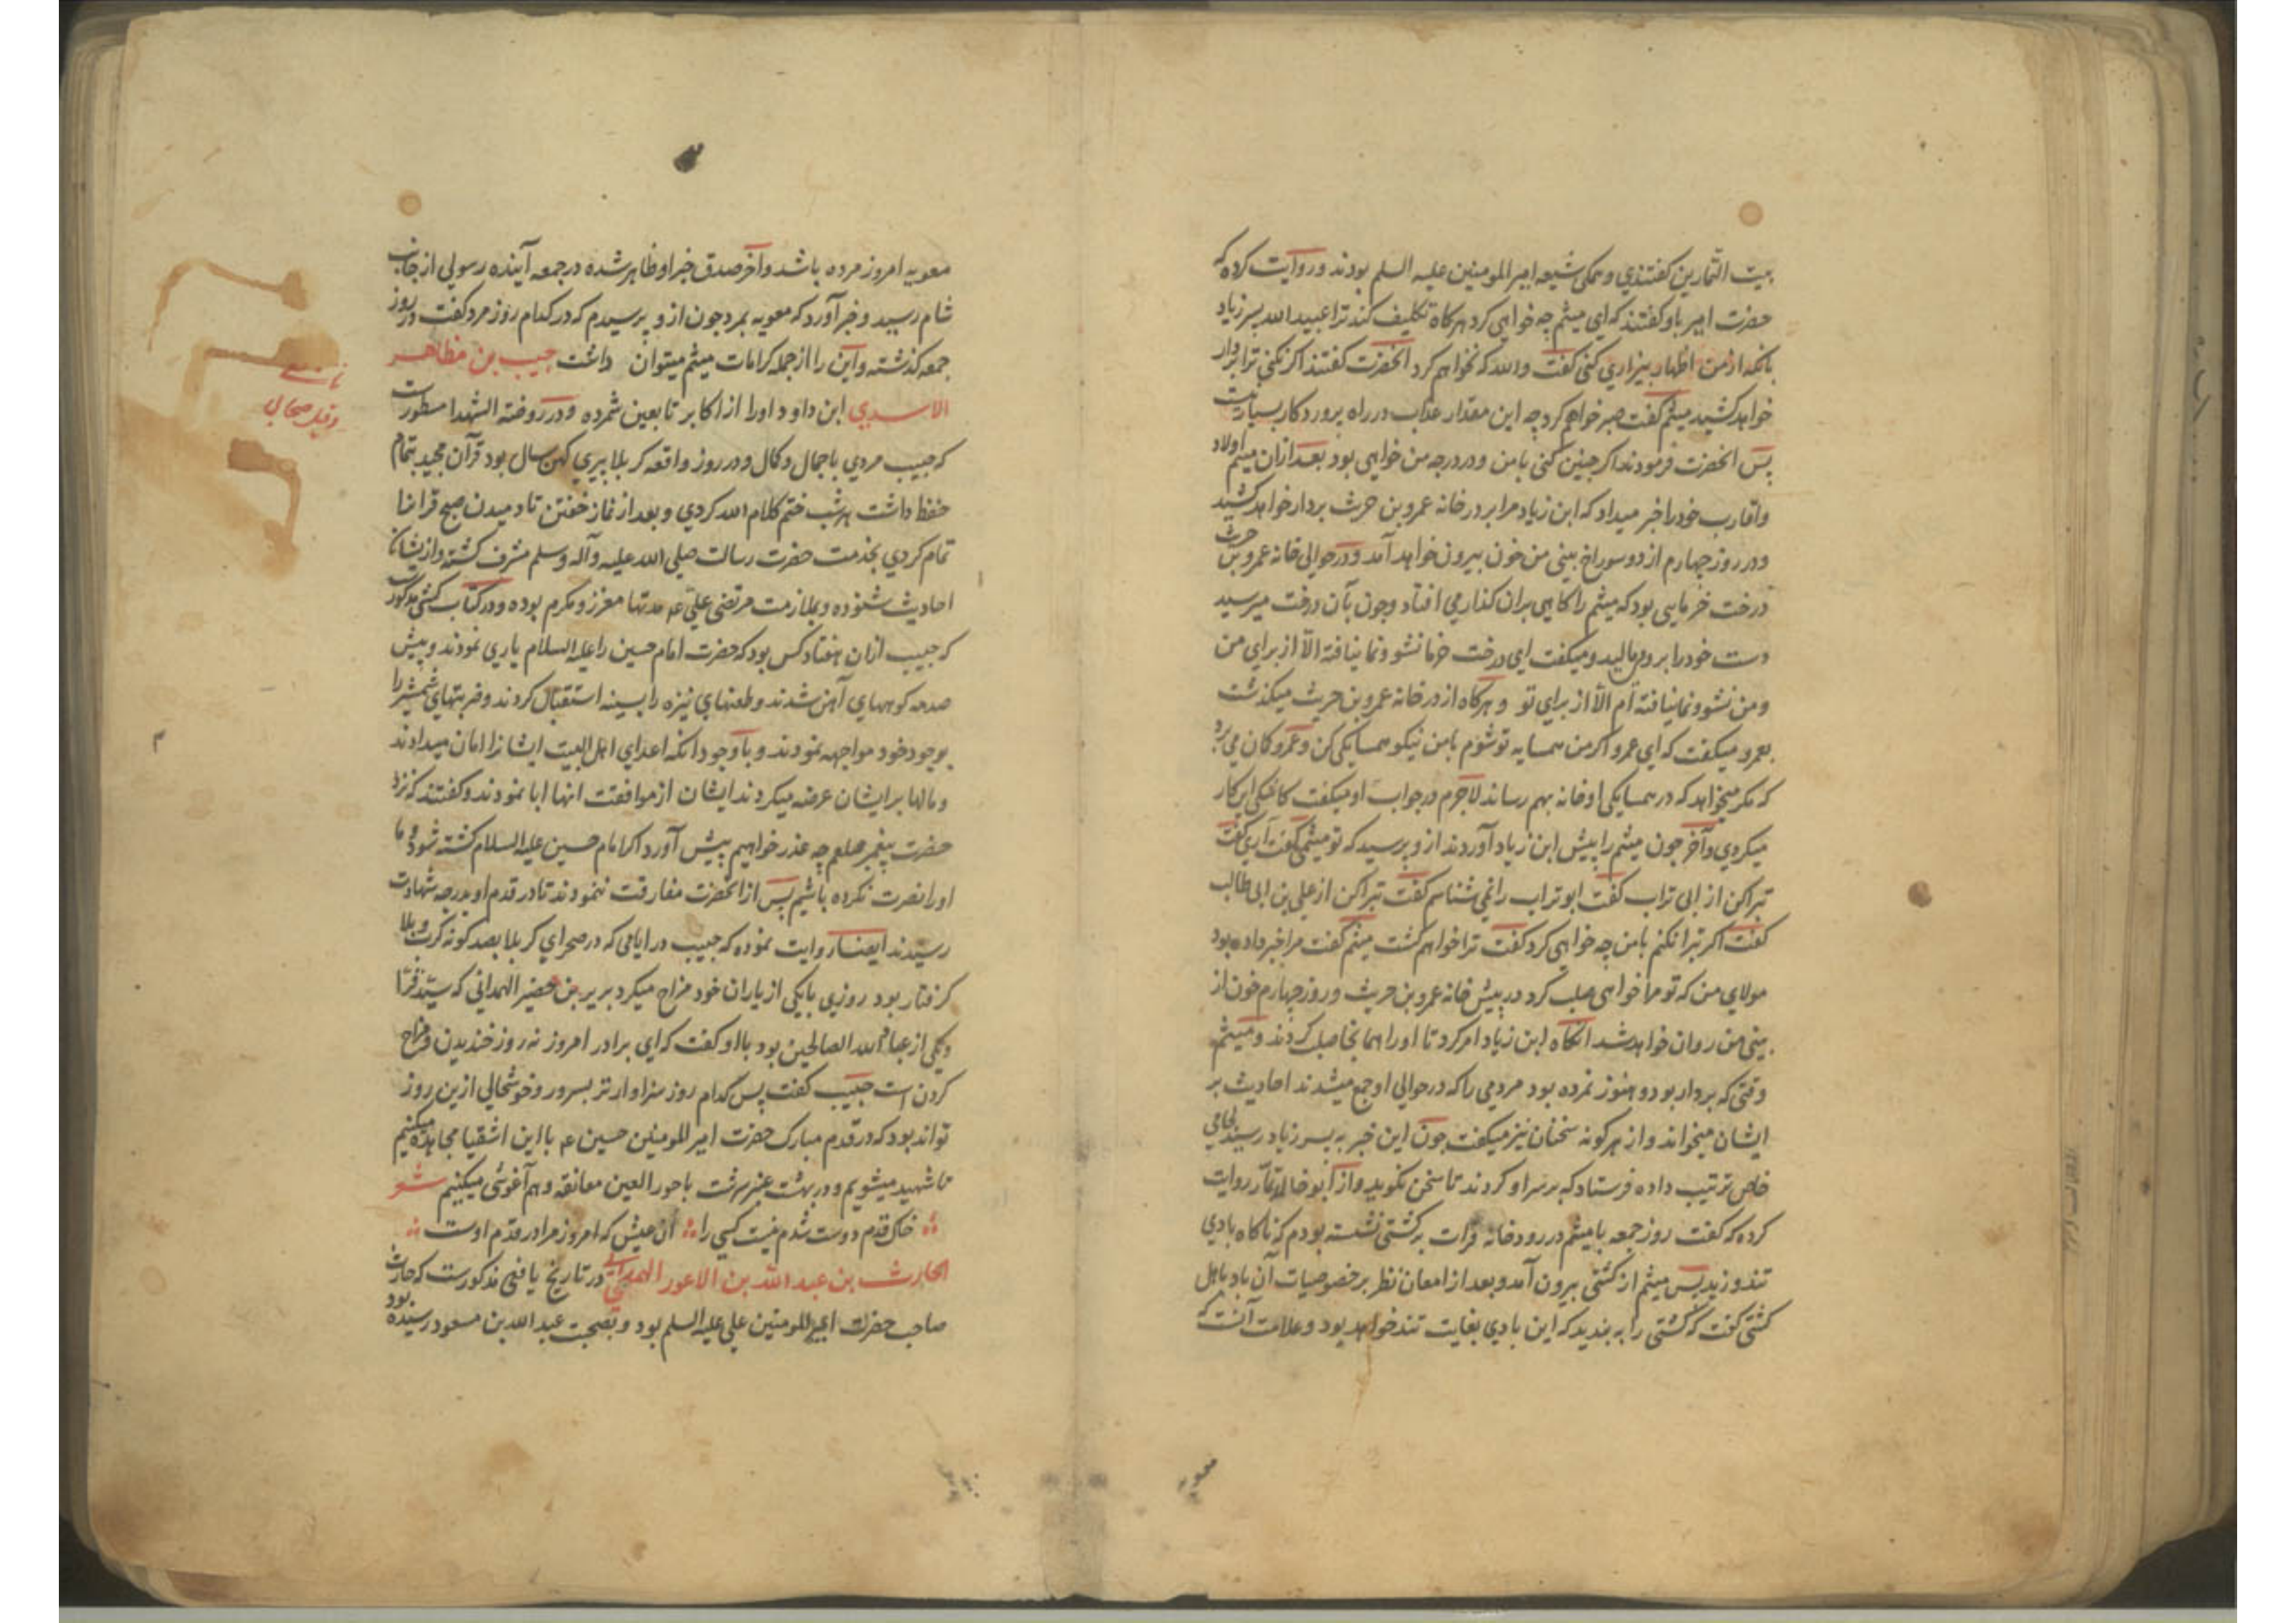 بیت التمارین گفتندی و همگی شیعه امیرالمومنین علیه السلم بودند و روایت کرده که
حضرت امیر باو گفتند که ای میثم چه خواهی کرد هرگاه تکلیف کند ترا عبید الله پسر زیاد
بانکه از من اظهار بیزاری کنی گفت والله که نخواهم کرد آنحضرت گفتند اگر نکنی ترا بردار
خواهد کشید میثم گفت صبر خواهم کرد چه این مقدار عذاب در راه پروردگار بسیار نیست
پس انحضرت فرمودند اگر چنین کنی بامن و در درجه من خواهی بود بعد ازان میثم اولاد
و اقارب خود را خبر میداد که ابن زیاد مرا بر در خانه عمرو بن حریث بردار خواهد کشید
و در روز چهارم از دو سوراخ بینی من خون بیرون خواهد آمد و در حوالی خانه عمرو بن حریث
درخت خرمایی بود که میثم را گاهی بران گذار می افتاد و چون بآن درخت میرسید
دست خود را برو میمالید و میگفت ای درخت خرما نشو و نما نیافته الا از برای من
و من نشو و نما نیافته ام الا از برای تو و هرگاه از در خانه عمرو بن حریث میگذشت
بعمرو میگفت که ای عمرو اگر من همسایه تو شوم بامن نیکو همسایگی کن و عمرو گمان می برد
که مگر میخواهد که در همسایگی او خانه بهم رساند لاجرم در جواب او میگفت کاشکی این کار
میکردی و آخر چون میثم را پیش ابن زیاد آوردند ازو پرسید که تو میثمی گفت آری گفت
تبرا کن از ابی تراب گفت ابوتراب را نمی شناسم گفت تبرا کن از علی بن ابی طالب
گفت اگر تبرا نکنم بامن چه خواهی کرد گفت ترا خواهم کشت میثم گفت مرا خبر داده بود
مولای من که تو مرا خواهی صلب کرد در پیش خانه عمرو بن حریث و روز چهارم خون از
بینی من روان خواهد شد انگاه ابن زیاد امر کرد تا او را همانجا صلب کردند و میثم
وقتی که بردار بود و هنوز نمرده بود مردمی را که در حوالی او جمع میشدند احادیث بر
ایشان میخواند و از هر گونه سخنان نیز میگفت چون این خبر به پسر زیاد رسید لجامی
خاص ترتیب داده فرستاد که بر سر او کردند تا سخن نگوید و از ابو خالد تمار روایت
کرده که گفت روز جمعه با میثم در رودخانه فرات به کشتی نشسته بودم که ناگاه بادی
تند وزید پس میثم از کشتی بیرون آمد و بعد از امعان نظر بر خصوصیات آن باد باهل
کشتی گفت که کشتی را به بندید که این بادی بغایت تند خواهد بود و علامت آنست که
معویه
معویه امروز مرده باشد و آخر صدق خبر او ظاهر شده در جمعه آینده رسولی از جانب
شام رسید و خبر آورد که معویه بمرد چون ازو پرسیدم که در کدام روز مرد گفت در روز
جمعه گذشته و این را از جمله کرامات میثم میتوان داشت حبیب بن مظاهر
الاسدی ابن داود او را از اکابر تابعین شمرده و در روضة الشهدا مسطورست
و قیل صحابی
که حبیب مردی باجمال و کمال و در روز واقعه کربلا پیری کهن سال بود قرآن مجید بتمام
حفظ داشت هر شب ختم کلام الله کردی و بعد از نماز خفتن تا دمیدن صبح قرآنرا
تمام کردی بخدمت حضرت رسالت صلی الله علیه وآله وسلم مشرف گشته و از ایشان
احادیث شنوده و بملازمت مرتضی علی عم مدتها معزز و مکرم بوده و در کتاب کشی مذکور
که حبیب ازان هفتاد کس بود که حضرت امام حسین را علیه السلام یاری نمودند و پیش
صدمه کوههای آهن شدند و طعنهای نیزه را بسینه استقبال کردند و ضربتهای شمشیر را
بوجود خود مواجهه نمودند و باوجود انکه اعدای اهل البیت ایشانرا امان میدادند
و مالها بر ایشان عرضه میکردند ایشان از موافقت انها ابا نمودند و گفتند که نزد
حضرت پیغمبر صلعم چه عذر خواهیم پیش آورد اگر امام حسین علیه السلام کشته شود و ما
او را نصرت نکرده باشیم پس از انحضرت مفارقت ننمودند تا در قدم او بدرجه شهادت
رسیدند ایضا روایت نموده که حبیب در ایامی که در صحرای کربلا بصد گونه کرب و بلا
گرفتار بود روزی بایکی از یاران خود مزاح میکرد بریر بن خضیر الهمدانی که سید قرا
و یکی از عباد الله الصالحین بود بااو گفت که ای برادر امروز نه روز خندیدن و مزاح
کردن است حبیب گفت پس کدام روز سزاوارتر بسرور و خوشحالی ازین روز
تواند بود که در قدم مبارک حضرت امیرالمومنین حسین عم بااین اشقیا مجاهده میکنیم
تا شهید میشویم و در بهشت عنبر سرشت با حور العین معانقه و هم آغوشی میکنیم شعر
خاک قدم دوست شدم نیست کسی را آن عیش که امروز مرا در قدم اوست
الحارث بن عبد الله بن الاعور الهمدانی در تاریخ یافعی مذکورست که حارث
صاحب حضرت امیرالمومنین علی علیه السلم بود و بصحبت عبد الله بن مسعود رسیده بود